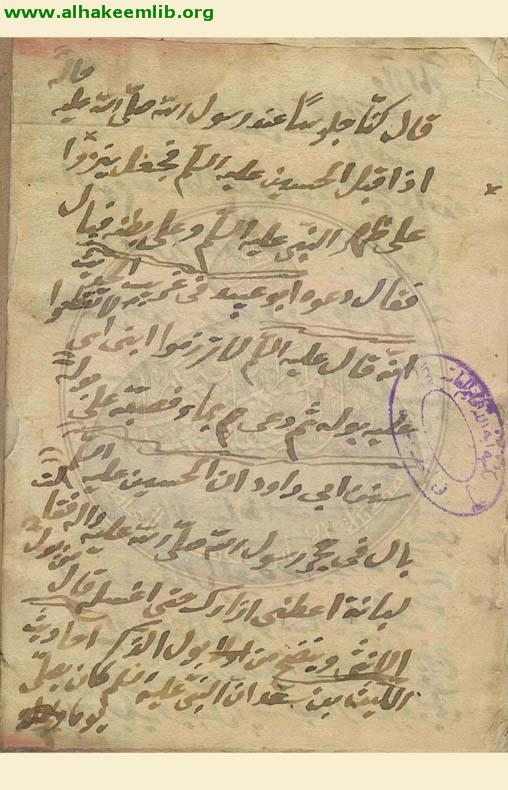 www.alhakeemlib.org
قال كنّا جلوسًا عند رسول الله صلّى الله عليه
واله
اذا قبل الحسين عليه السلم فجعل ينزوا
على ظهر النبي عليه السلم وعلى بطنه فبال
فقال دعوه ابو عبيد في غريب الحديث
انه قال عليه السلم لا تزرموا ابنى اى لا تقطعوا
عليه بوله ثم دعى ص بماء فصبّه على بوله
سنن ابى داود ان الحسين عليه السلم
بال في حجر رسول الله صلّى الله عليه واله فقالت
لبانة اعطنى ازارك حتى اغسله قال
من بول
الانثى وينضح من بول الذكر احاديث
الليث بن سعد ان النبي عليه السلم كان يصلّى
يوما